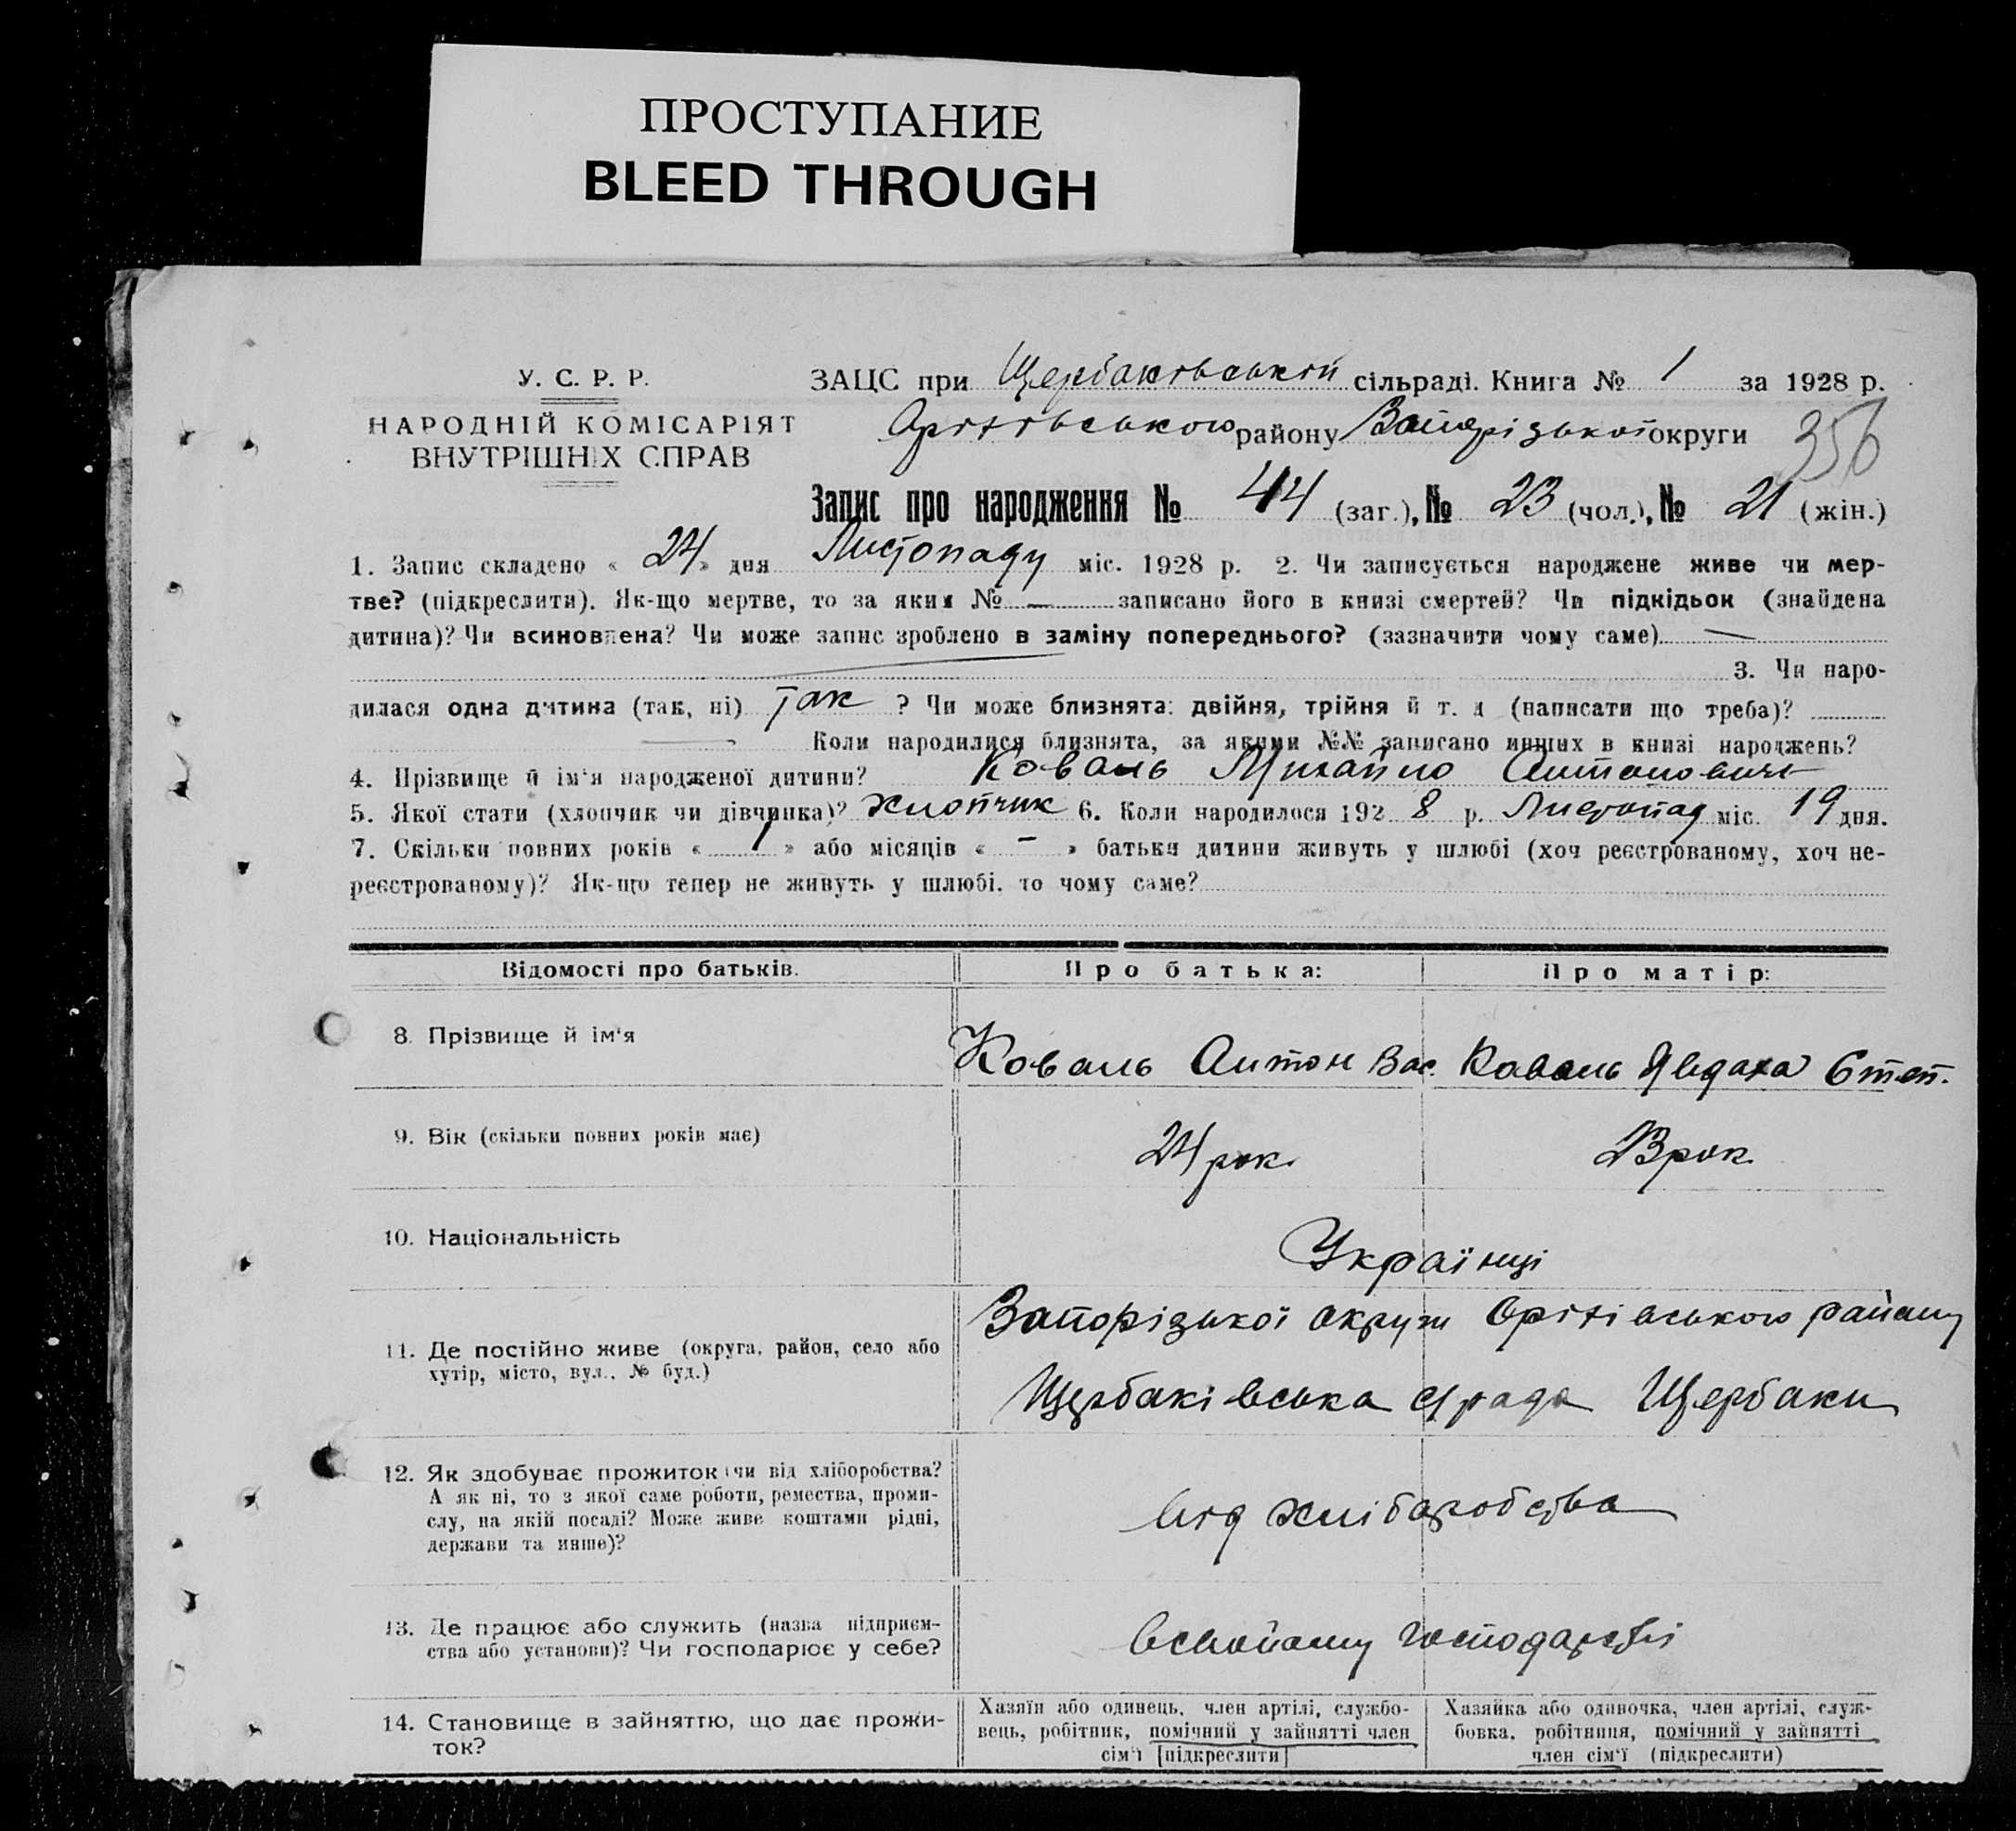 ПРОСТУПАНИЕ
BLEED THROUGH
У. С. Р. Р.
НАРОДНІЙ КОМІСАРІЯТ
ВНУТРІШНІХ СПРАВ
ЗАЦС при Щербаківській сільраді. Книга № 1 за 1928 р.
Оріхівського району Запорізької округи 356
Запис про народження № 44 (заг.), № 23 (чол.), № 21 (жін.)
1. Запис складено « 24 » дня Листопаду міс. 1928 р. 2. Чи записується народжене живе чи мер-
тве? (підкреслити). Як-що мертве, то за яким № — записано його в книзі смертей? Чи підкідьок (знайдена
дитина)? Чи всиновлена? Чи може запис зроблено в заміну попереднього? (зазначити чому саме) —
3. Чи наро-
дилася одна дитина (так, ні) Так ? Чи може близнята: двійня, трійня й т. д (написати що треба)?
— Коли народилися близнята, за якими №№ записано инших в книзі народжень?
4. Прізвище й ім‘я народженої дитини? Коваль Михайло Антонович
5. Якої стати (хлопчик чи дівчинка)? хлопчик 6. Коли народилося 192 8 р. Листопад міс. 19 дня.
7. Скільки повних років « 1 » або місяців « – » батьки дитини живуть у шлюбі (хоч реєстрованому, хоч не-
реєстрованому)? Як-що тепер не живуть у шлюбі, то чому саме?
Відомості про батьків. Про батька: Про матір:
8. Прізвище й ім‘я Коваль Антон Вас. Коваль Явдоха Степ.
9. Вік (скільки повних років має) 24 рок. 23 рок.
10. Національність Українці
Запорізької округи Оріхівського району
11. Де постійно живе (округа, район, село або
хутір, місто, вул., № буд.)
Щербаківська с/рада Щербаки
12. Як здобуває прожиток (чи від хліборобства?
А як ні, то з якої саме роботи, ремества, проми-
слу, на якій посаді? Може живе коштами рідні,
держави та инше)?
від хліборобства
13. Де працює або служить (назва підприєм-
ства або установи)? Чи господарює у себе?
всвойому господарстві
14. Становище в зайняттю, що дає прожи-
ток?
Хазяїн або одинець, член артілі, службо-
вець, робітник, помічний у зайнятті член
сім‘ї [підкреслити]
Хазяйка або одиночка, член артілі, служ-
бовка, робітниця, помічний у зайнятті
член сім‘ї (підкреслити)